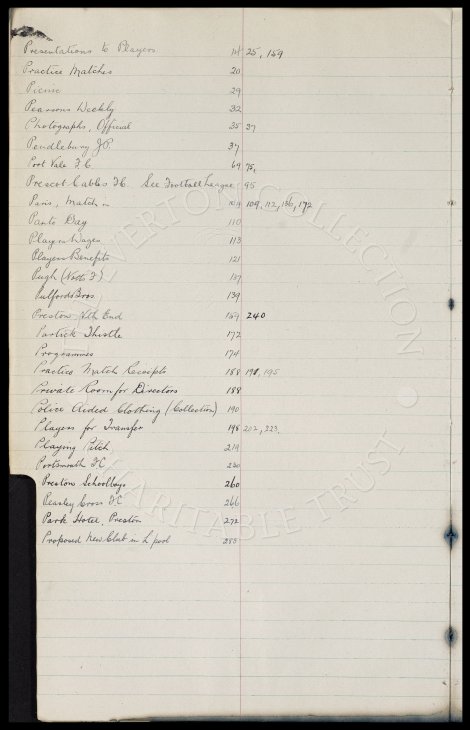 Presentations to Players 14 25, 159
Practice Matches 20
Picnic 29
Pearsons Weekly 32
Photographs, Official 35 37
Pendlebury J.P. 37
Port Vale F.C. 69 75,
Prescot Cables F.C. See Football League 95
Paris, Match in 104 109, 112, 156, 172
Panto Day 110
Players Wages 113
Players Benefits 121
Pugh (Notts F.) 137
Pulford Bros. 139
Preston Nth End 159 240
Partick Thistle 172
Programmes 174
Practice Match Receipts 188 191, 195
Private Room for Directors 188
Police Aided Clothing (Collection) 190
Players for Transfer 198 202, 223,
Playing Pitch 219
Portsmouth F.C. 230
Preston Schoolboys 260
Peasley Cross F.C. 266
Park Hotel, Preston 272
Proposed New Club in L'pool 285
EVERTON COLLECTION
CHARITABLE TRUST